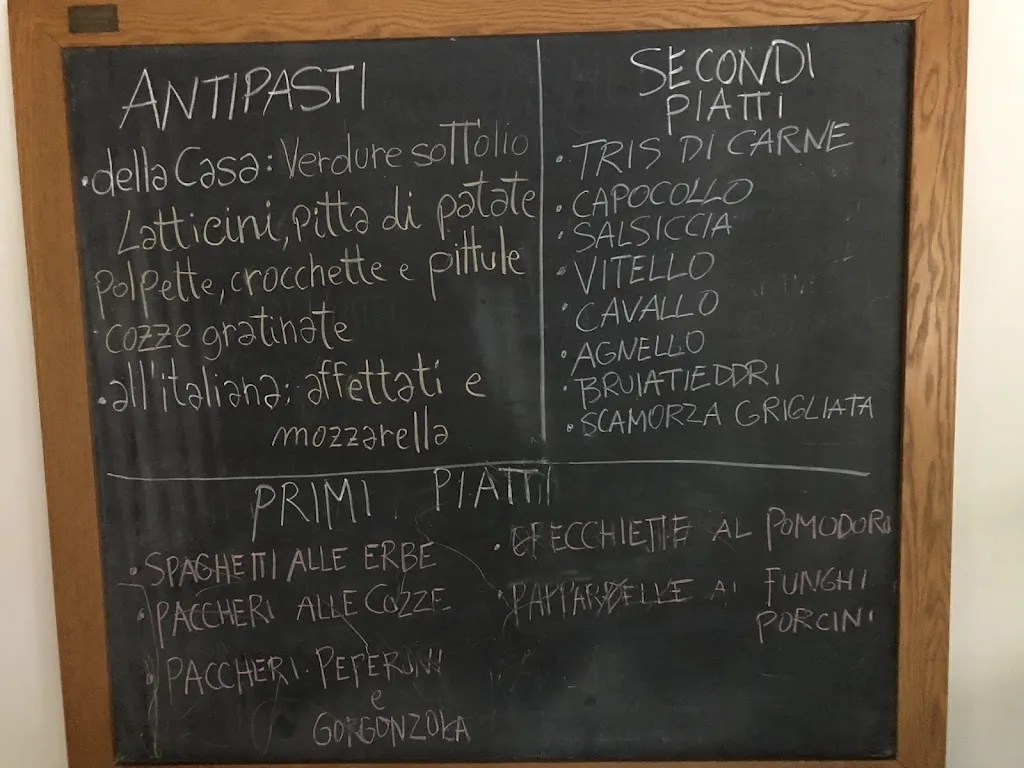 ANTIPASTI
• della Casa: Verdure sottolio
Latticini, pitta di patate
polpette, crocchette e pittule
cozze gratinate
• all'italiana: affettati e
mozzarella
SECONDI
PIATTI
• TRIS DI CARNE
• CAPOCOLLO
• SALSICCIA
• VITELLO
• CAVALLO
• AGNELLO
• BRUIATIEDDRI
• SCAMORZA GRIGLIATA
PRIMI PIATTI
• SPAGHETTI ALLE ERBE
• PACCHERI ALLE COZZE
• PACCHERI PEPERINI
e
GORGONZOLA
• ORECCHIETTE AL POMODORO
• PAPPARDELLE AI FUNGHI
PORCINI